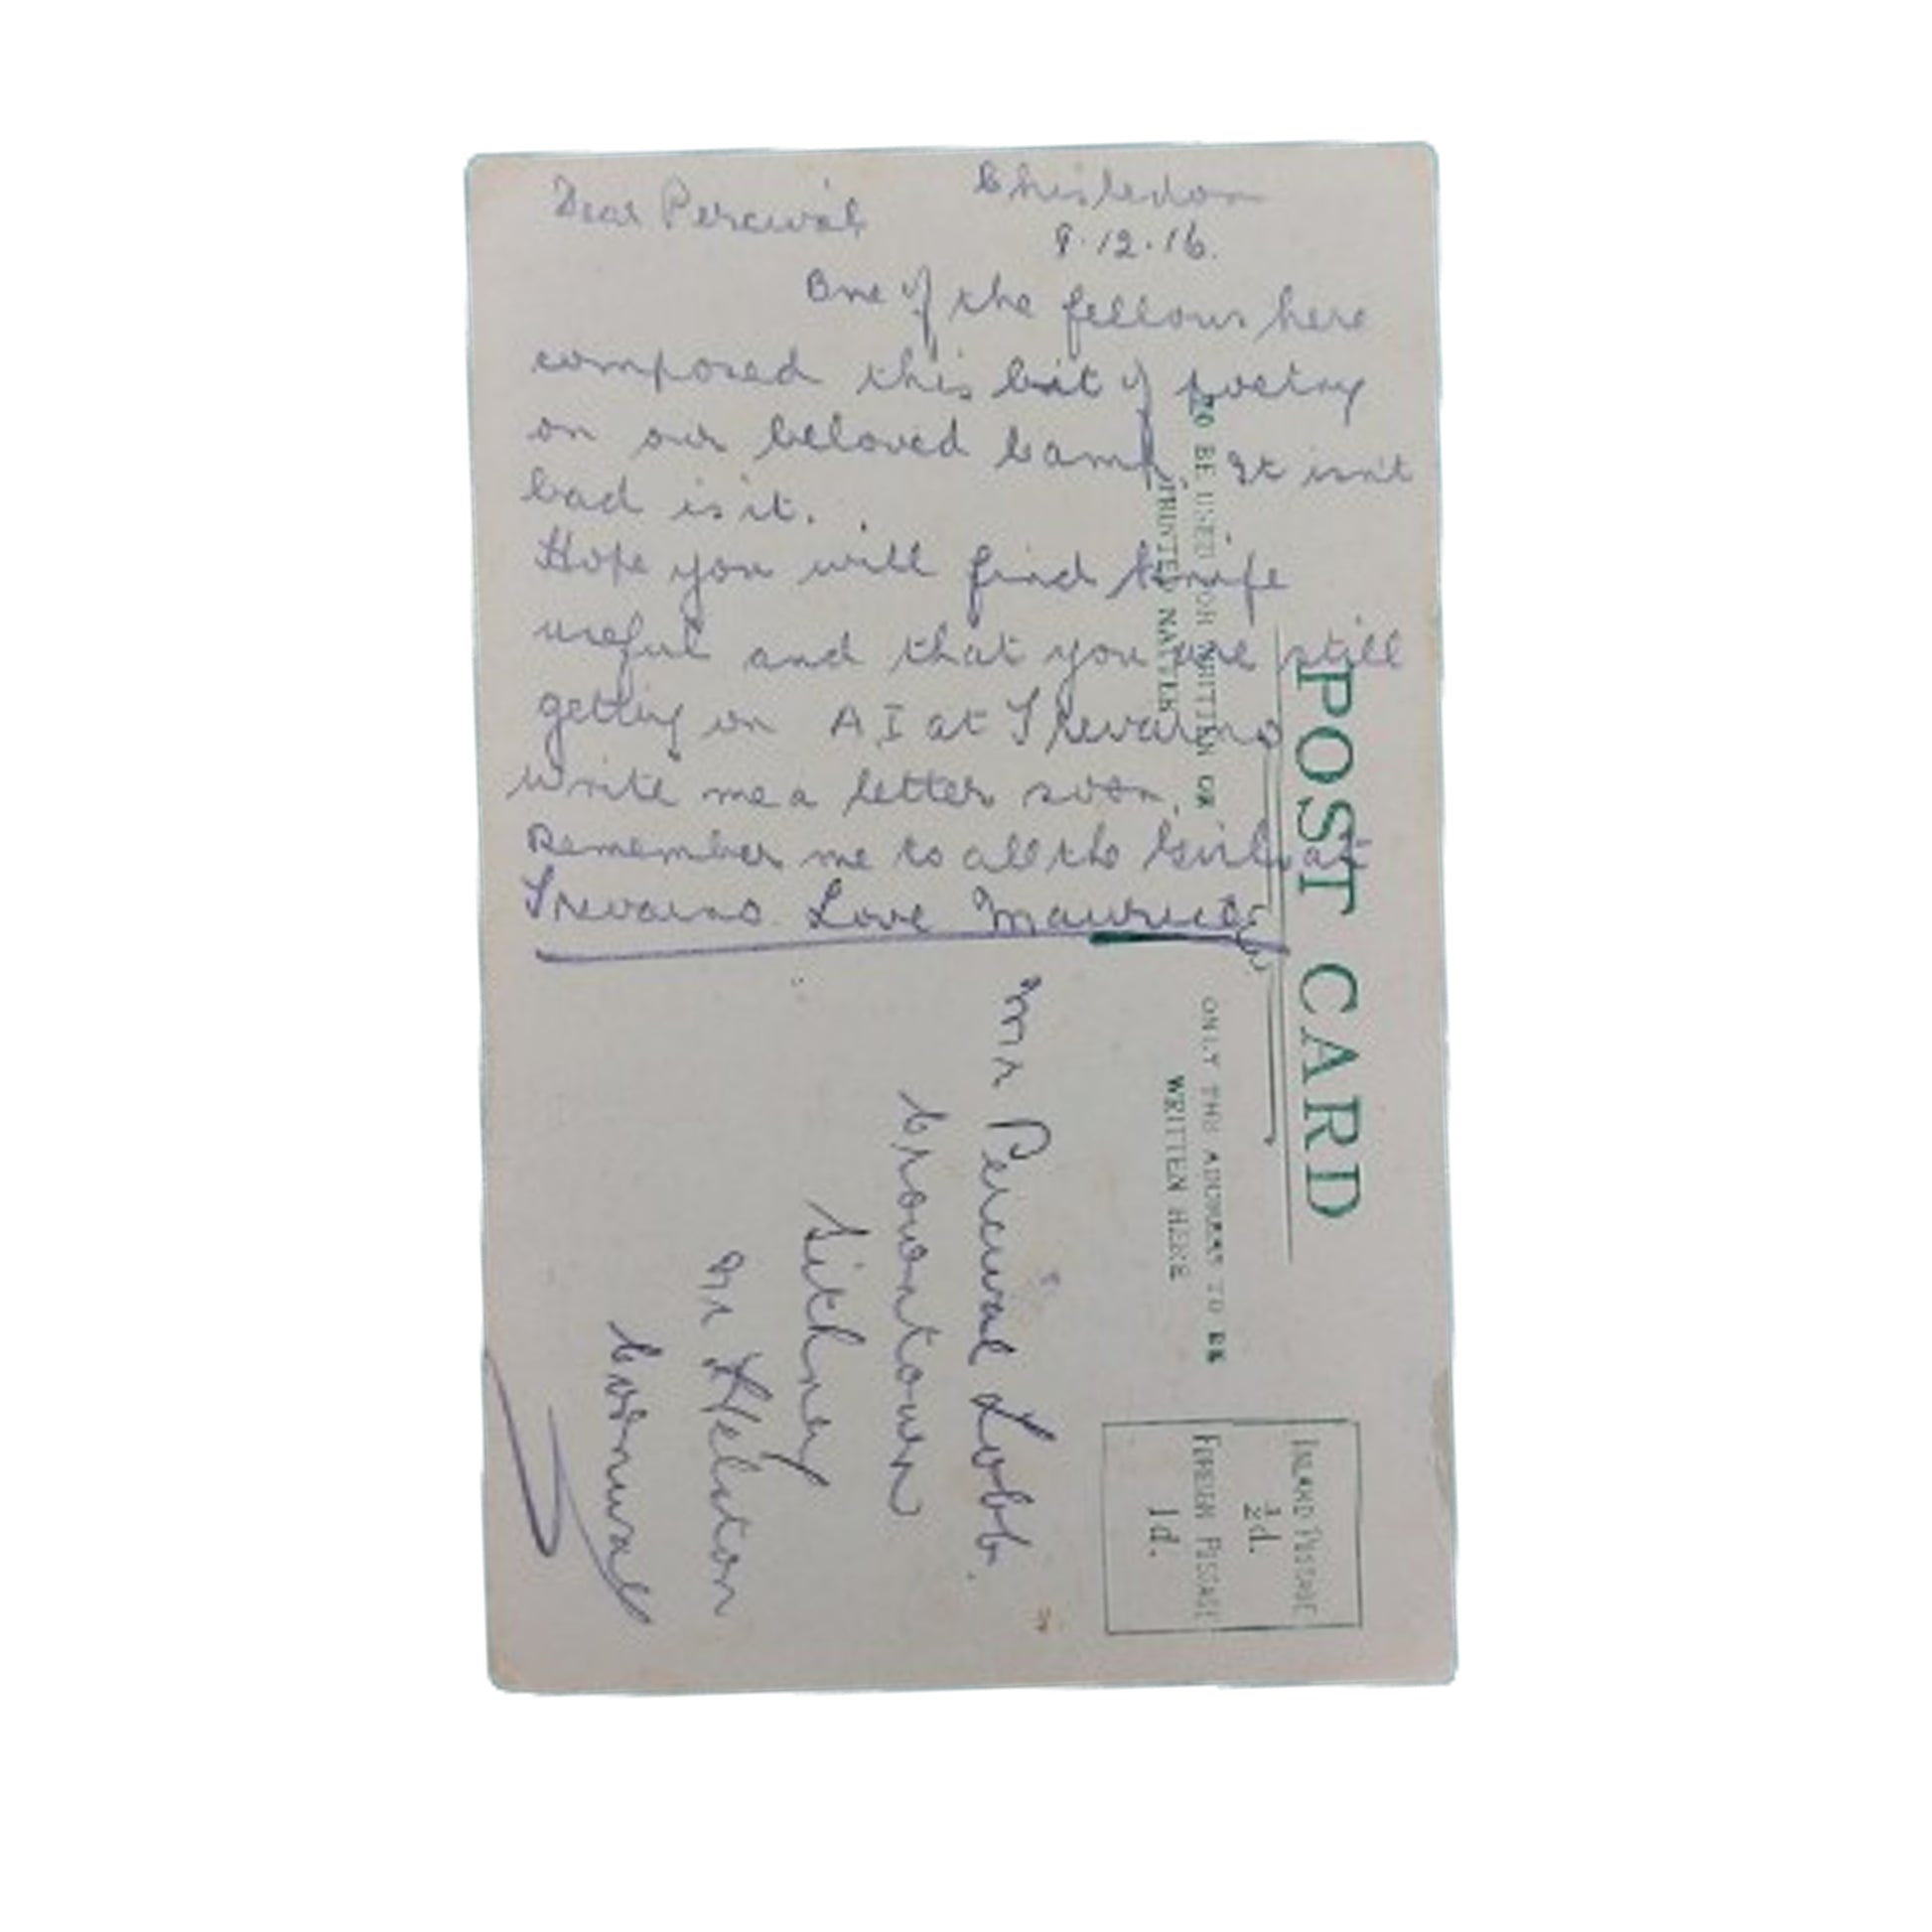 Chisledon
Dear Percival
9.12.16.
One of the fellows here
composed this bit of poetry
on our beloved Camp. It isn't
bad is it.
Hope you will find knife
useful and that you are still
getting on A I at Trevarno
write me a letter soon.
Remember me to all the Girls at
Trevarno Love Maurice
POST CARD
TO BE USED FOR WRITTEN OR
PRINTED MATTER
ONLY THE ADDRESS TO BE
WRITTEN HERE
INLAND POSTAGE
½d.
FOREIGN POSTAGE
1d.
Mr Percival Lobb.
Crowntown
Sithney
Nr Helston
Cornwall